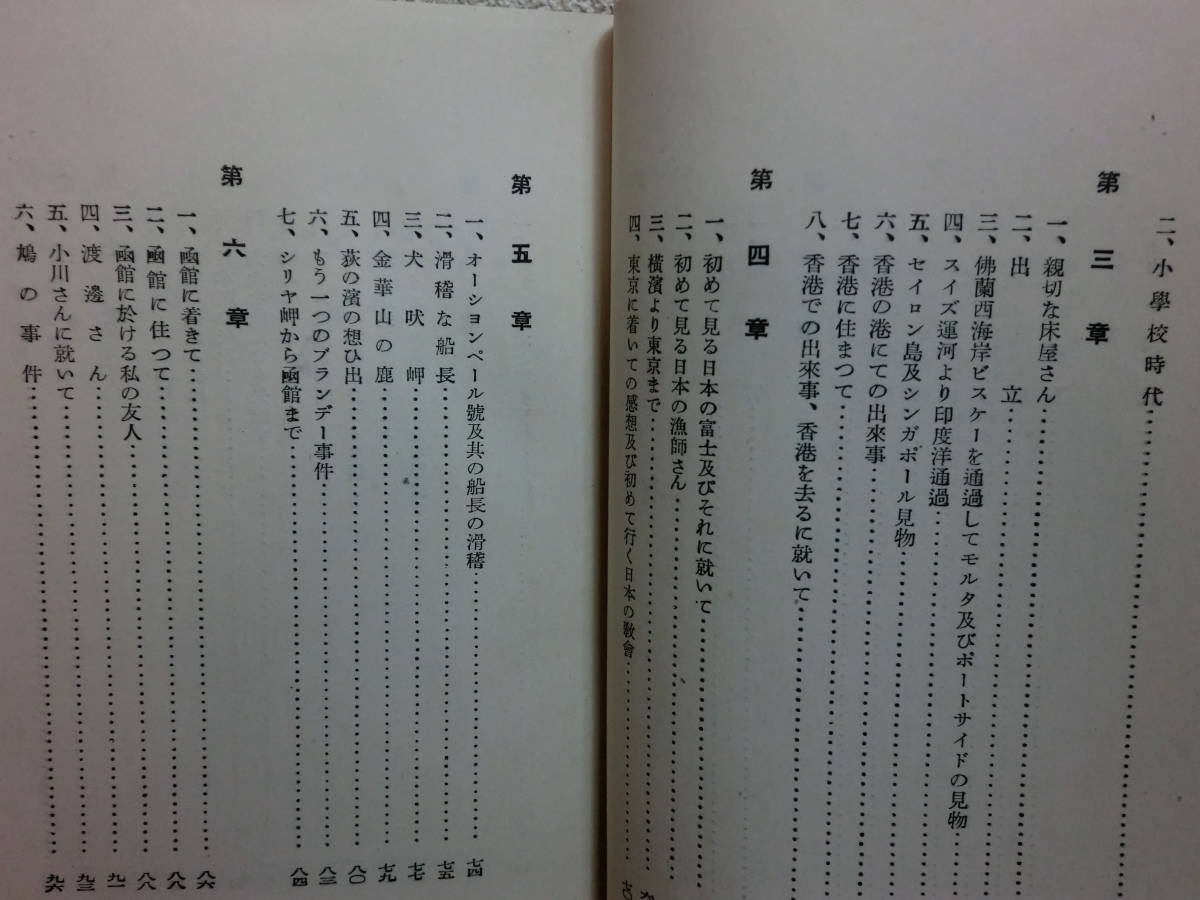 二、小學校時代
第三章
一、親切な床屋さん
二、出立
三、佛蘭西海岸ビスケーを通過してモルタ及びポートサイドの見物
四、スイズ運河より印度洋通過
五、セイロン島及シンガポール見物
六、香港の港にての出來事
七、香港に住まつて
八、香港での出來事、香港を去るに就いて
第四章
一、初めて見る日本の富士及びそれに就いて
二、初めて見る日本の漁師さん
三、橫濱より東京まで
四、東京に着いての感想及び初めて行く日本の敎會
第五章
一、オーションペール號及其の船長の滑稽 七四
二、滑稽な船長 七五
三、犬吠岬 七七
四、金華山の鹿 七九
五、荻の濱の想ひ出 八〇
六、もう一つのブランデー事件 八三
七、シリヤ岬から函館まで 八四
第六章
一、函館に着きて 八六
二、函館に住つて 八八
三、函館に於ける私の友人 九一
四、渡邊さん 九三
五、小川さんに就いて 九六
六、鳩の事件